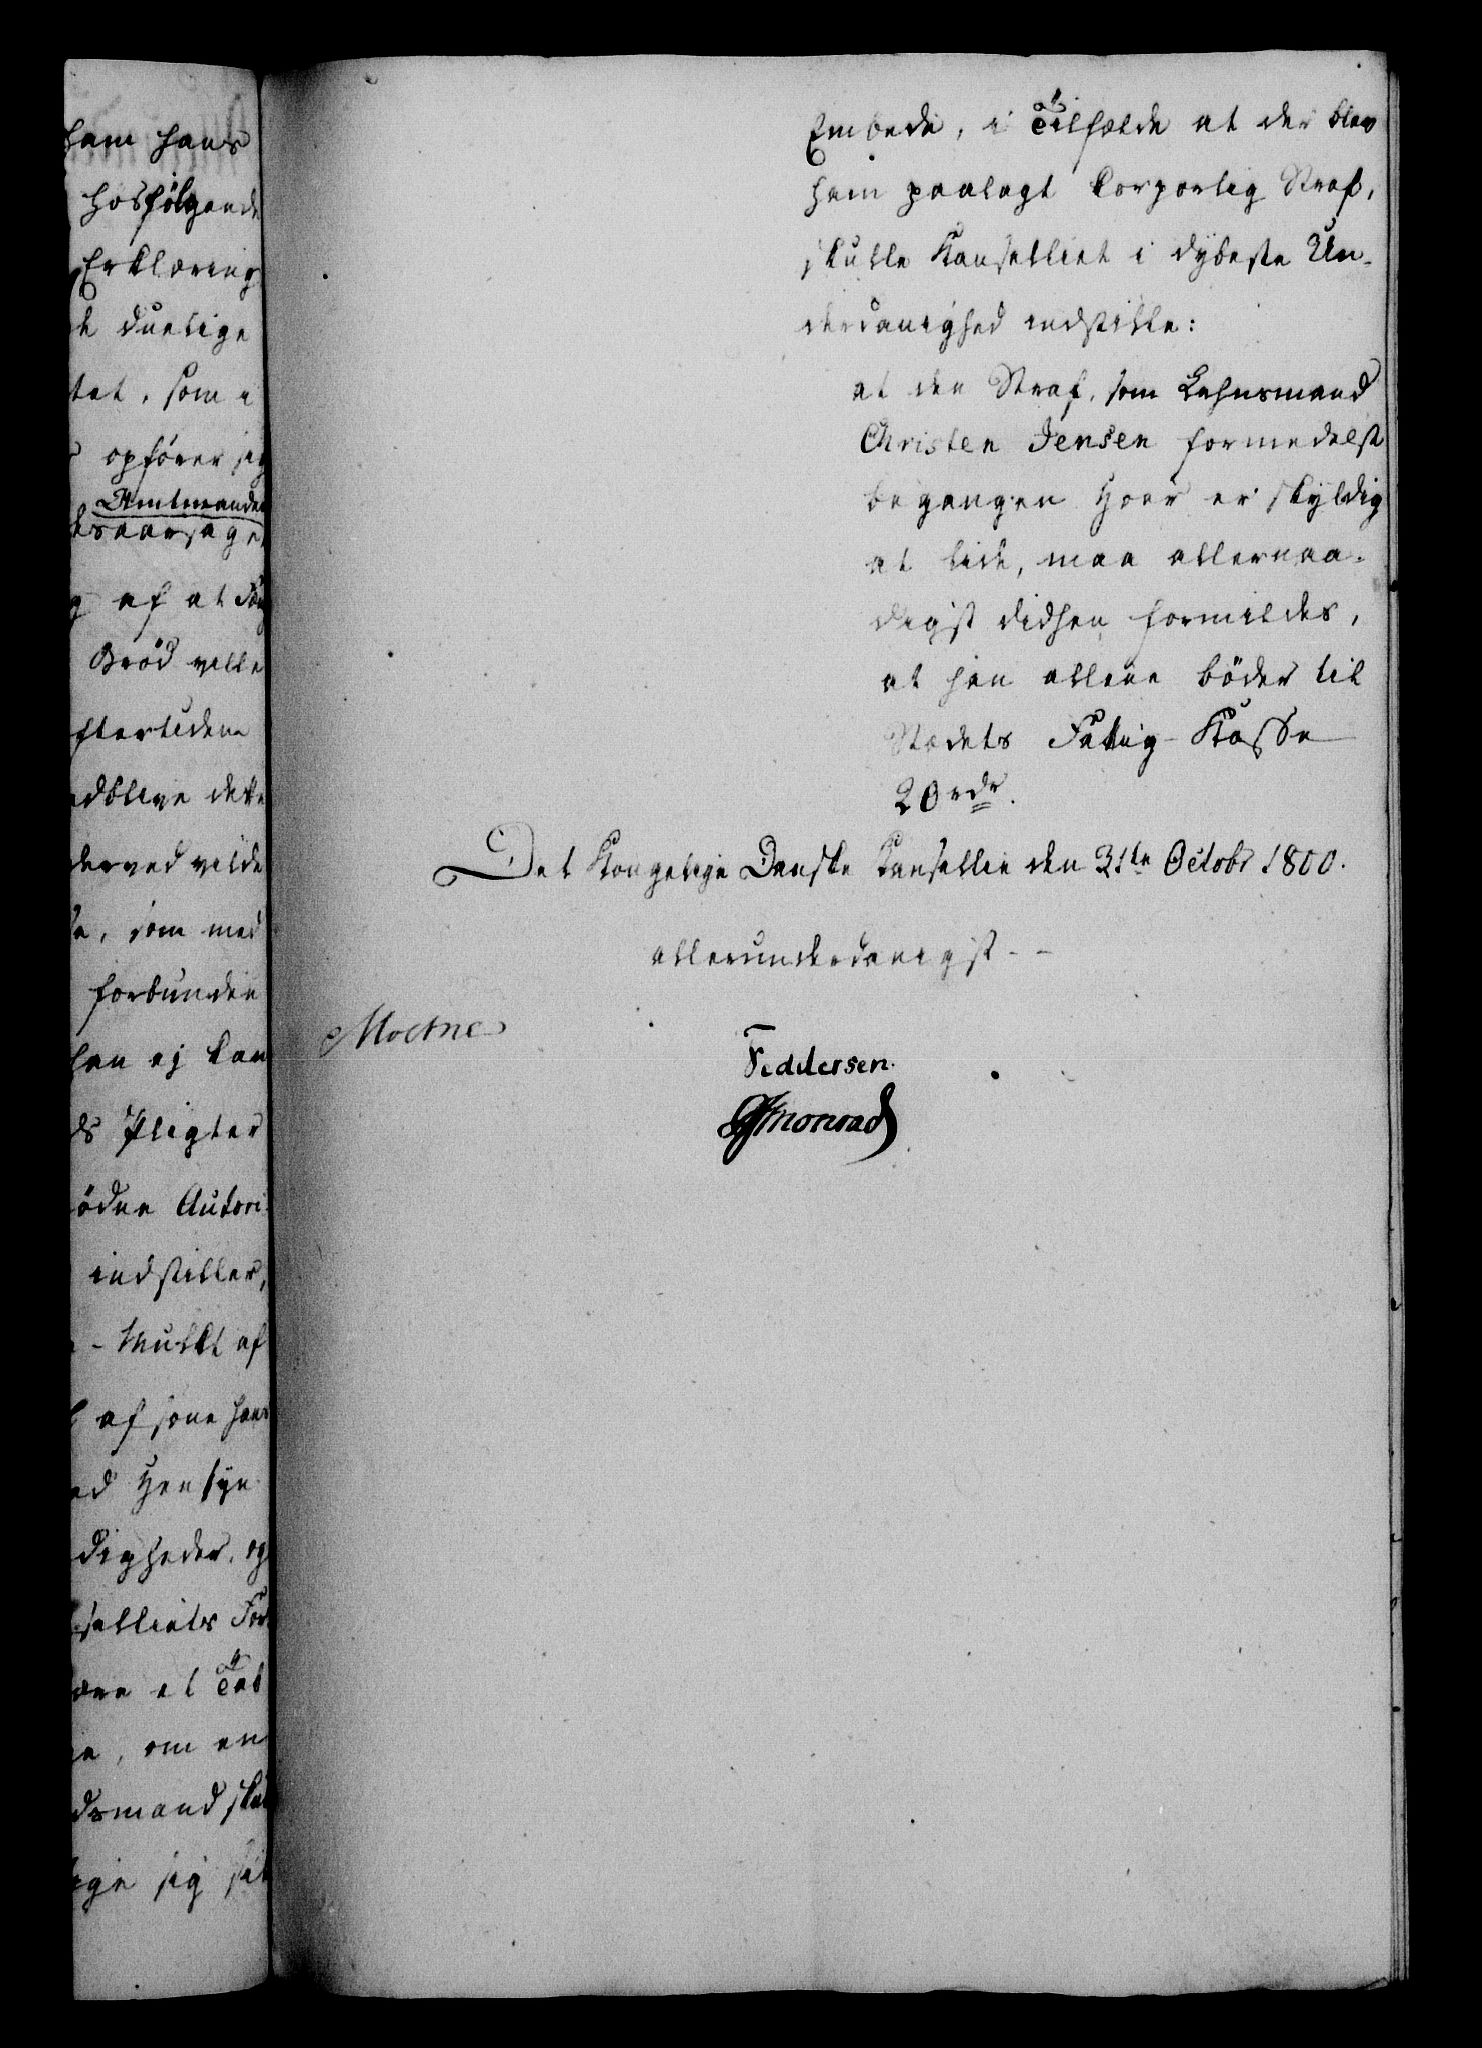 ham hans
hosfølgende
Erklæring
duelige
tet, som i
opfører sig
Amtmanden
af at
Brød ville
dette
derved vilde
som med
forbunden
han ej kan
Pligter
Autori-
indstiller,
- Mulkt af
af sone hans
Hensyn
digheder, og
et
om en
sig
Embede, i Tilfælde at der blev
ham paalagt korporlig Straf,
skulle Kanselliet i dybeste Un-
derdanighed indstille:
at den Straf, som Lehnsmand
Christen Jensen formedelst
begangen Hoer er skyldig
at lide, maa allernaa-
digst didhen formildes,
at han allene bøder til
Stædets Fattig-Kasse
20 rdr.
Det Kongelige Danske Kansellie den 31te Octobr 1800.
allerunderdanigst - -
Moltke
Feddersen.
Monrad